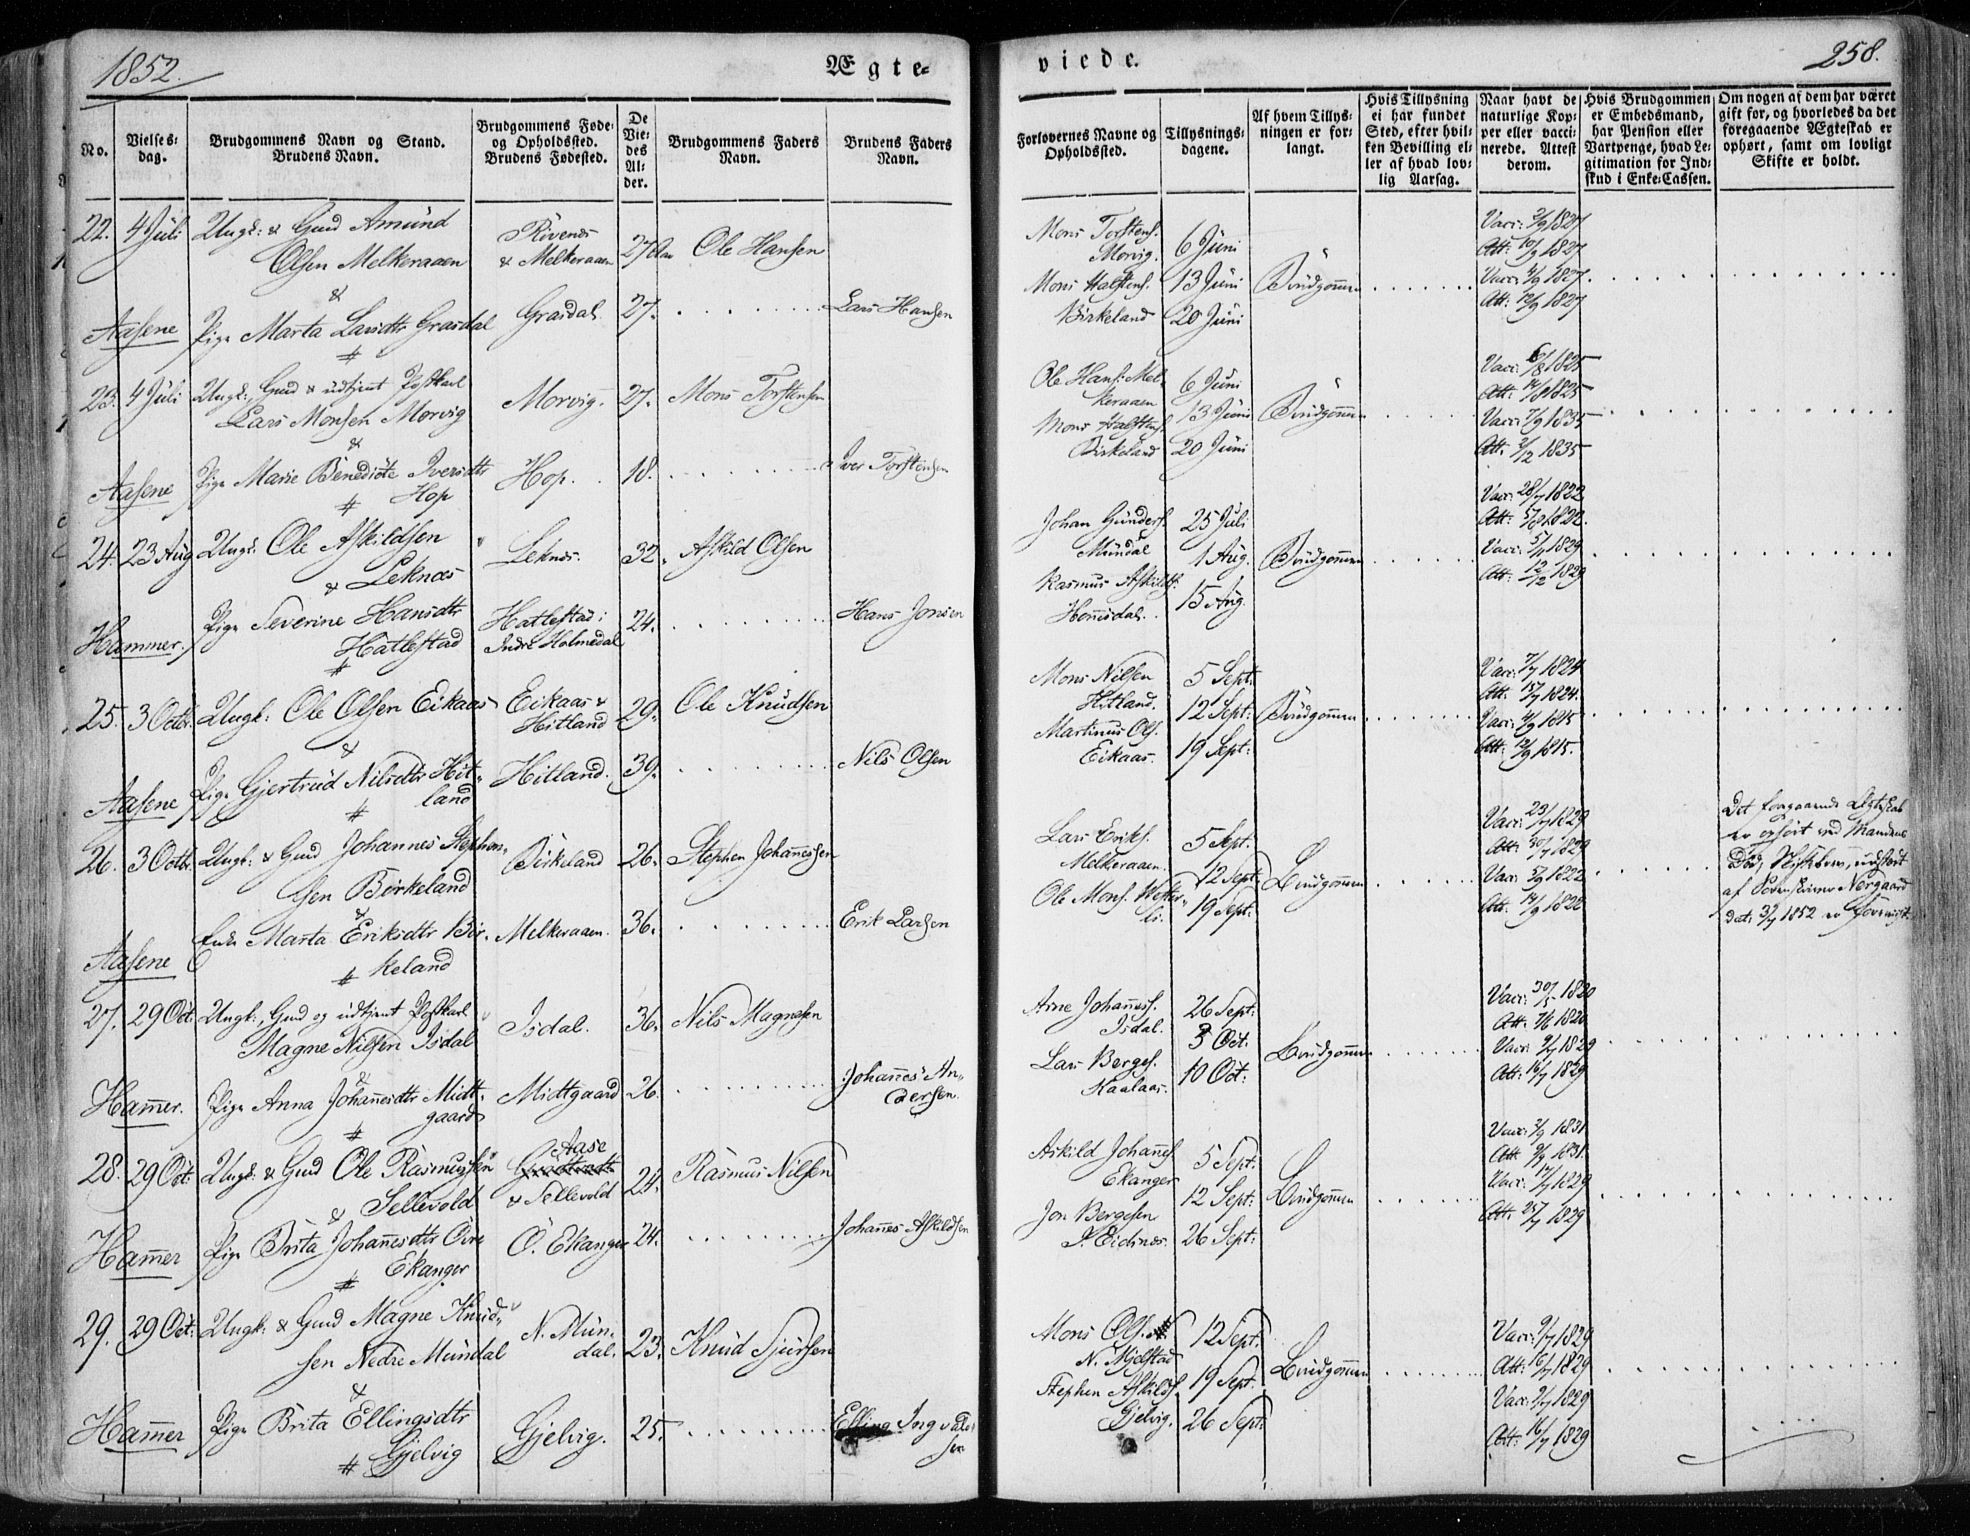 1852.
Ægte=
No.
Vielses=
dag.
Brudgommens Navn og Stand.
Brudens Navn.
Brudgommens Føde=
og Opholdssted.
Brudens Fødested.
De
Vie=
des
Al=
der.
Brudgommens Faders
Navn.
Brudens Faders
Navn.
22. 4 Juli Ungk: & Gmd Amund
Olsen Melkeraaen
Rivenes
& Melkeraaen
27 Aar Ole Hansen
&
Aasene Pige Marta Larsdtr Grasdal Grasdal 27. Lars Hansen
#
23. 4 Juli Ungk:, Gmd & udtjent Postkarl
Lars Monsen Morvig
Morvig. 27. Mons Torstensen
&
Aasene Pige Marie Benedicte Iversdtr
Hop
Hop. 18. Iver Torstensen
#
24. 23 Aug Ungk: Ole Askildsen
Leknæs
Leknes. 32. Askild Olsen
&
Hammer. Pige Severine Hansdtr
Hatlestad
Hatlestad i
Indre Holmedal
24. Hans Jonsen
#
25. 3 Octbr. Ungk: Ole Olsen Eikaas Eikaas &
Hitland
29. Ole Knudsen
&
Aasene Pige Gjertrud Nilsdtr Hit=
land
Hitland. 39. Nils Olsen
#
26. 3 Octbr. Ungk: & Gmd Johannes Stephen=
sen Birkeland
Birkeland 26. Stephen Johannessen
&
Aasene Enke Marta Eriksdtr Bir=
keland
Melkeraaen. 36. Erik Larsen
#
27. 29 Oct: Ungk:, Gmd og udtjent Postkarl
Magne Nilsen Isdal
Isdal. 36. Nils Magnesen
&
Hamer. Pige Anna Johanesdtr Midt=
gaard
Midtgaard 26. Johanes An=
dersen.
#
28. 29 Oct: Ungk: & Gmd Ole Rasmussen
Sellevold
Aase
& Sellevold
24. Rasmus Nilsen
&
Hamer Pige Brita Johanesdtr Övre
Ekanger
Ö. Ekanger 24. Johannes Askildsen
#
29. 29 Oct: Ungk: & Gmd Magne Knud=
sen Nedre Mundal
N. Mun=
dal.
23. Knud Sjursen
&
Hamer Pige Brita Ellingsdtr
Gjelvig
Gjelvig. 25. Elling Ingvald=
sen
#
viede.
258.
Forlovernes Navne og
Opholdssted.
Tillysnings=
dagene.
Af hvem Tillys=
ningen er for=
langt.
Hvis Tillysning
ei har fundet
Sted, efter hvil=
ken Bevilling el=
ler af hvad lov=
lig Aarsag.
Naar havt de
naturlige Kop=
per eller vacci=
nerede. Attest
derom.
Hvis Brudgommen
er Embedsmand,
har Pension eller
Vartpenge, hvad Le=
gitimation for Ind=
skud i Enke=Cassen.
Om nogen af dem har været
gift før, og hvorledes da det
foregaaende Ægteskab er
ophørt, samt om lovligt
Skifte er holdt.
Mons Torstens.
Morvig.
Mons Halstens.
Birkeland
6 Juni
13 Juni
20 Juni
Brudgommen
Vacc: 3/9 1827
Att: 10/9 1827
Vacc: 4/9 1827
Att: 12/9 1827
Ole Hans. Mel=
keraaen
Mons Halstens.
Birkeland
6 Juni
13 Juni
20 Juni
Brudgommen
Att: 14/8 1825
Vacc: 7/9 1835
Att: 2/12 1835
Johan Gunders.
Mundal
Rasmus Askilds.
Honnisdal.
25 Juli
1 Aug.
15 Aug.
Brudgommen
Vacc: 28/7 1822
Att: 5/8 1822.
Vacc: 5/11 1829
Att: 12/12 1829
Mons Nilsen
Hitland.
Martinus Ols.
Eikaas.
5 Sept:
12 Sept:
19 Sept:
Brudgommen
Vacc: 7/7 1824
Att: 15/7 1824.
Vacc: 4/9 1815
Att: 12/9 1815.
Lars Eriks.
Melkeraaen.
Ole Mons. Wester=
li.
5 Sept:
12 Sept:
19 Sept:
Brudgommen
Vacc: 23/7 1829
Att: 30/7 1829
Vacc: 5/9 1822
Att: 14/9 1822
Det foregaaende Ægteskab
er ophört ved Mandens
Död, Skiftebrev, udstedt
af Sorenskriver Norgaard
dat: 3/7 1852 er foreviist.
Arne Johaness.
Isdal.
Lars Berges.
Kaalaas.
26 Sept:
3 Oct:
10 Oct:
Brudgommen
Vacc: 30/5 1820
Att: 7/6 1820
Vacc: 9/7 1829
Att: 16/7 1829
Askild Johanes.
Ekanger
Jon Bergesen
I. Eidnes.
5 Sept:
12 Sept:
26 Sept:
Brudgommen
Vacc: 2/9 1831
Att: 9/9 1831.
Vacc: 17/7 1829
Att: 25/7 1829
Mons Ols.
N. Mjelstad
Stephen Askilds.
Gjelvig.
12 Sept:
19 Sept:
26 Sept:
Brudgommen
Vacc: 9/7 1829
Att: 16/7 1829
Vacc: 9/7 1829
Att: 16/7 1829